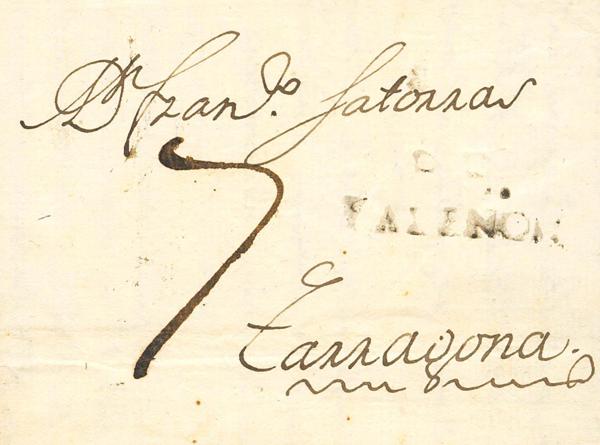 A Dn Franco. Satorras
7
DE
VALENCIA
Tarragona.